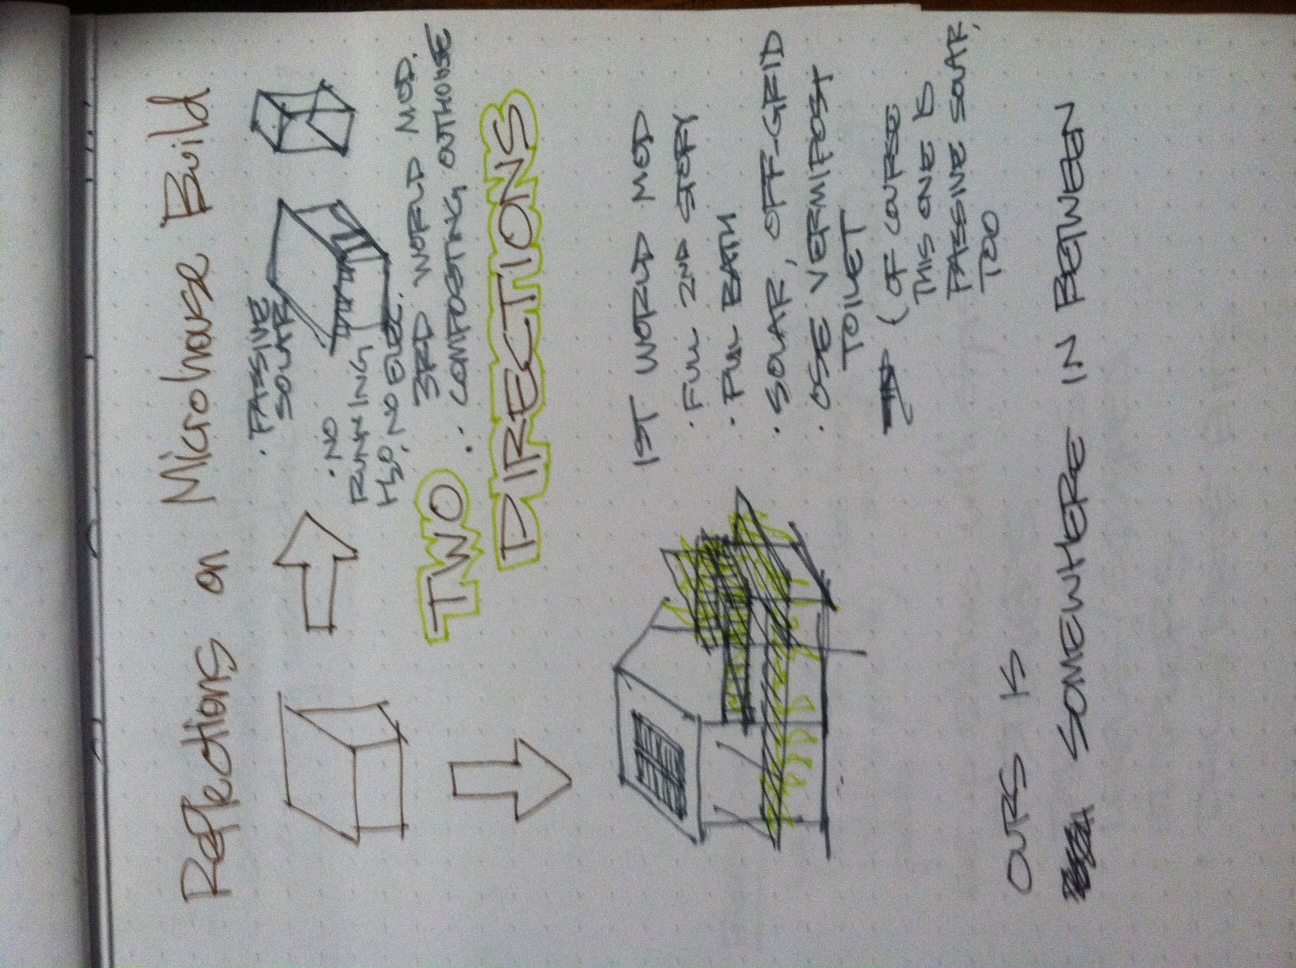 Reflections on Microhouse Build
· PASSIVE
SOLAR
· NO
RUNNING
H2O, NO ELEC.
3RD WORLD MOD.
· COMPOSTING OUTHOUSE
TWO
DIRECTIONS
1ST WORLD MOD
· FULL 2ND STORY
· FULL BATH
· SOLAR, OFF-GRID
· OSE VERMIPOST
TOILET
(OF COURSE
THIS ONE IS
PASSIVE SOLAR,
TOO
OURS IS
SOMEWHERE IN BETWEEN